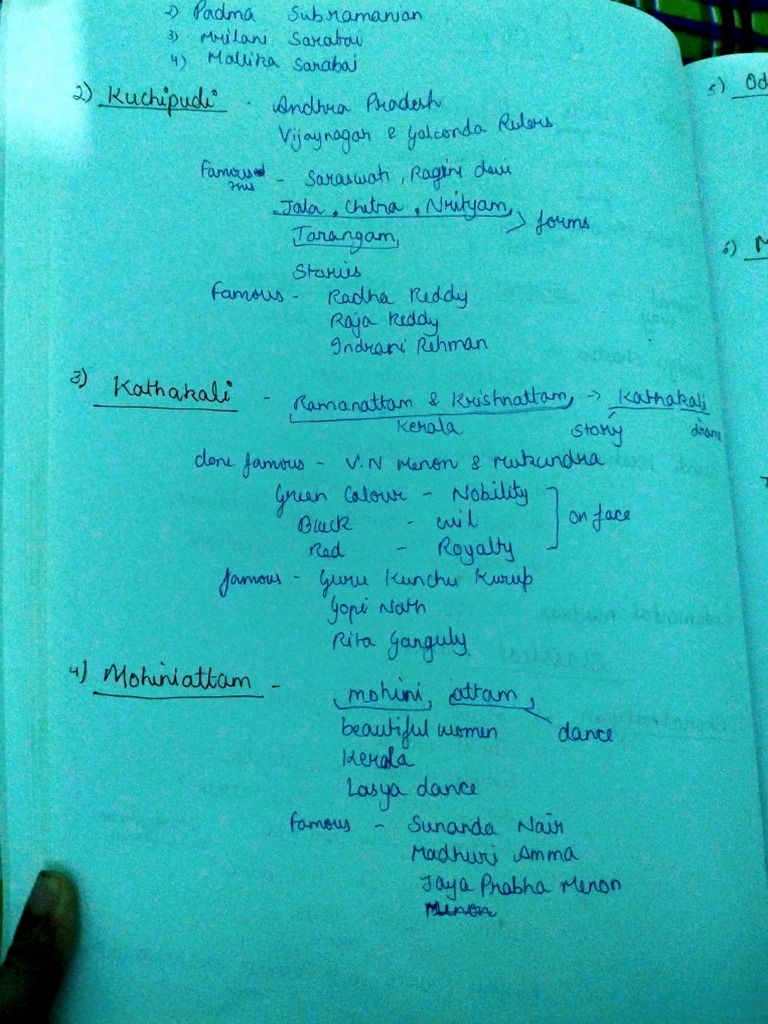 2) Padma Subramanian
3) Mrilani Sarabai
4) Mallika Sarabai
2) Kuchipudi - Andhra Pradesh
Vijaynagar & Golconda Rulers
Famous this - Saraswati, Ragini devi
Jala, Chitra, Nrityam, > forms
Tarangam,
Stories
Famous - Radha Reddy
Raja Reddy
Indrani Rehman
3) Kathakali - Ramanattam & Krishnattam, -> Kathakali
Kerala story drama
done famous - V.N Menon & Mukundra
Green Colour - Nobility
Black - evil
Red - Royalty
on face
famous - Guru Kunchu Kurup
Gopi Nath
Rita Ganguly
4) Mohiniattam - mohini, attam,
beautiful women dance
Kerala
Lasya dance
famous - Sunanda Nair
Madhuri Amma
Jaya Prabha Menon
Menon
5) Od
6) M